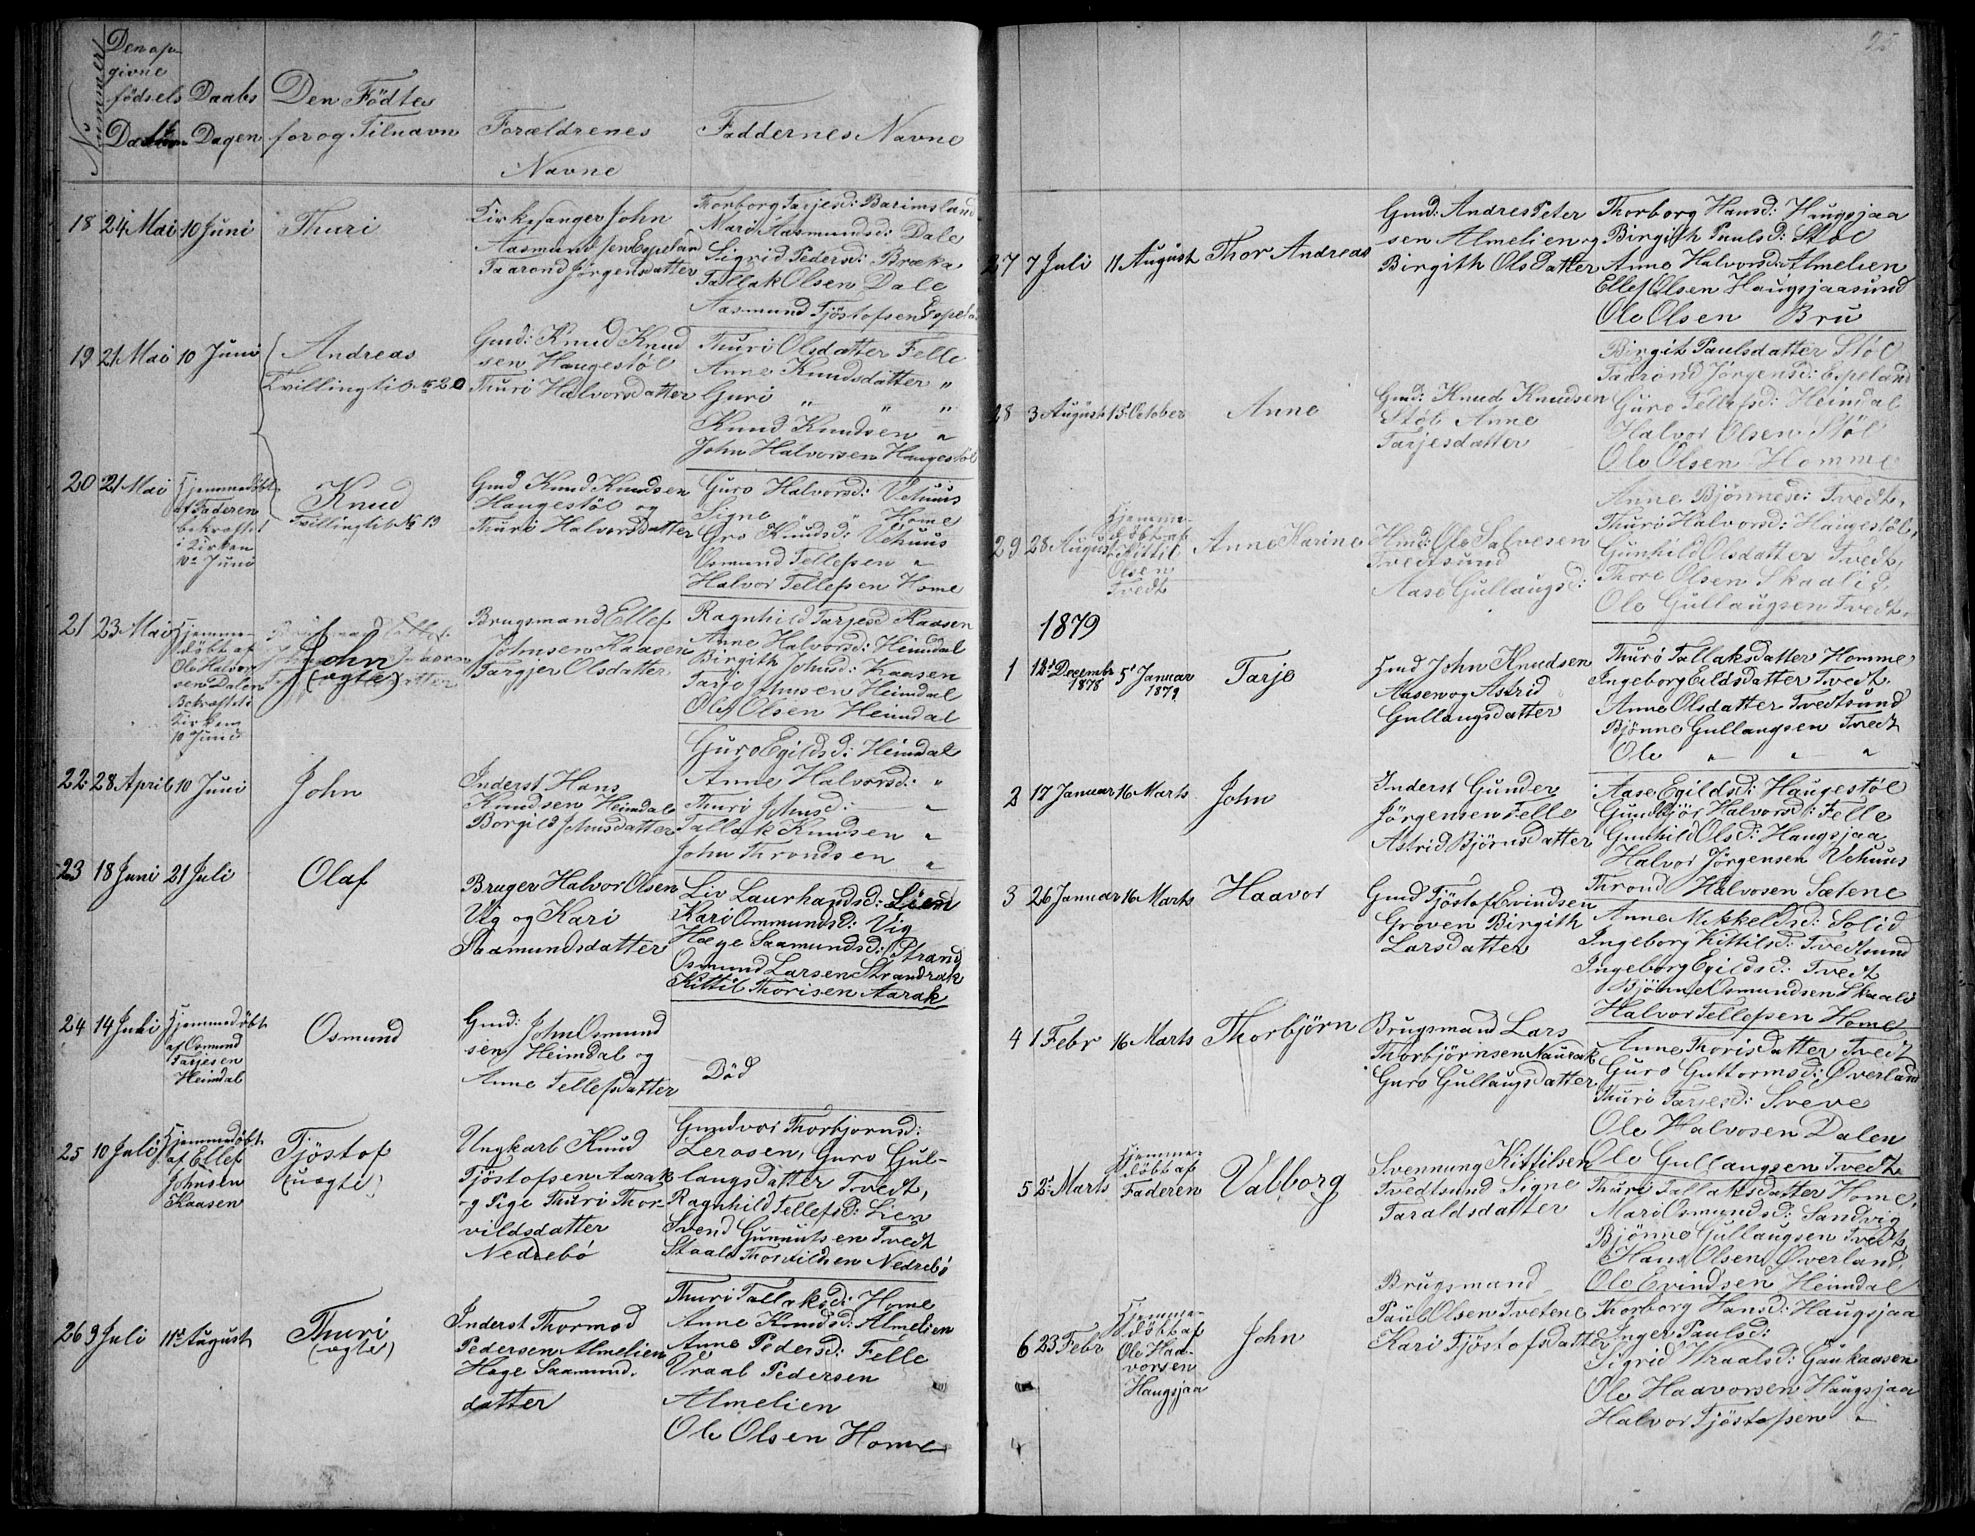 Nummer
Den op
givne
fødsels Daabs Den Födte
Dagen for og Tilnavn Forældrenes Faddernes Navne
Navne
18 24 Mai 10 Juni Thuri
Kirkesanger John
Aasmundsen Espeland
Taarond Jörgensdatter
Thorborg Tarjesd: Barimsland
Mari Aasmundsd: Dale
Sigrid Pedersd: Bræka
Tallak Olsen Dale
Aasmund Tjöstofsen Espeland
19 21 Mai 10 Juni Andreas
Tvilling til No 20
Gmd: Knud Knud
sen Haugestöl
Thuri Halvorsdatter
Thuri Olsdatter Felle
Anne Knudsdatter "
Guri " " "
Knud Knudsen "
John Halvorsen Haugestöl
20 21 Mai Hjemmedöbt
af Faderen
bekræftet
i Kirken
10 Juni
Knud
Tvilling til No 19
Gmd Knud Knudsen
Haugestöl og
Thuri Halvorsdatter
Guro Halvorsd: Vehuus
Signe " " Home
Gro Knudsd: Vehuus
Osmund Tellefsen "
Halvor Tellefsen Home
21 23 Mai Hjemme-
döbt af
Ole Halvor
sen Dalen
Bekræftet i
Kirken
10 Juni
John
(ægte)
Brugsmand Ellef
Johnsen Kaasen og
Targjer Olsdatter
Ragnhild Tarjesd Kaasen
Anne Halvorsd: Heimdal
Birgith Johnsd: Kaasen
Tarje Johnsen Heimdal
Ole Olsen Heimdal
22 28 April 10 Juni John
Inderst Hans
Knudsen Heimdal
Borgild Johnsdatter
Guro Egildsd: Heimdal
Anne Halvorsd: "
Thuri Johnsd: "
Tallak Knudsen "
John Throndsen "
23 18 Juni 21 Juli Olaf
Bruger Halvor Olsen
Vig og Kari
Saamundsdatter
Liv Laurhandsd: Lien
Kari Ommundsd: Vig
Hæge Saamundsd: Strand
Osmund Larsen Strandrak
Kittil Thorisen Aarak
24 14 Juli Hjemmedöbt
af Osmund
Tarjesen
Heimdal
Osmund
Gmd: John Osmund
sen Heimdal og
Anne Tellefsdatter
Död
25 10 Juli Hjemmedöbt
af Ellef
Johnsen
Kaasen
Tjöstof
(uægte)
Ungkarl Knud
Tjöstofsen Aarak
og Pige Thuri Thor-
vildsdatter
Nedrebö
Gundvor Thorbjornsd:
Lerosen, Guro Gul-
laugsdatter Tvedt,
Ragnhild Tellefsd: Lien
Svend Gunnulfsen Tvedt
Staale Thorvildsen Nedrebö
26 9 Juli 11te August Thuri
(ægte)
Inderst Thormod
Pedersen Almelien
Hæge Saamund.
datter
Thuri Tallaksd: Home
Anne Knudsd: Almelien
Anne Pedersd: Felle
Vraal Pedersen
Almelien
Ole Olsen Home
25
27 7 Juli 11 August Thor Andreas
Gmd: Andres Peter
sen Almelien og
Birgith Olsdatter
Thorborg Hansd: Haugsjaa
Birgith Paulsd: Stöl
Anne Halvorsd: Almelien
Ellef Olsen Haugsjaasund
Ole Olsen Bru
28 3 August 15 October Anne
Gmd: Knud Knudsen
Stöl Anne
Tarjesdatter
Birgit Paulsdatter Stöl
Taarond Jörgensd: Espeland
Guro Tellefsd: Heimdal
Halvor Olsen Stöl
Ole Olsen Homme
29 28 August Hjemme-
döbt af
Kittil
Olsen
Tvedt
Anne Karine
Hmd: Ole Salvesen
Tvedtsund
Aase Gullaugsd:
Anne Bjönnesd: Tvedt,
Thuri Halvorsd: Haugestöl,
Gunhild Olsdatter Tvedt,
Thore Olsen Skaalid,
Ole Gullaugsen Tvedt.
1879
1 12te Decembr 1878 5te Januar 1879 Tarje
Hmd John Knudsen
Aasen og Astrid
Gullaugsdatter
Thuro Tallaksdatter Homme
Ingeborg Eildsdatter Tvedt
Anne Olsdatter Tvedtsund
Bjönne Gullaugsen Tvedt
Ole " " "
2 17 Januar 16 Marts John
Inderst Gunder
Jörgensen Felle
Astrid Björnsdatter
Aase Egildsd: Haugestöl
Gundbjör Halvorsd: Felle
Gunhild Olsd: Haugsjaa
Halvor Jörgensen Vehuus
Thrond Halvosen Sætene
3 26 Januar 16 Marts Haavor
Gmd Tjöstof Evindsen
Groven Birgith
Larsdatter
Anne Mikkelsd: Solid
Ingeborg Kittilsd: Tvedtsund
Ingeborg Egildsd: Tvedt
Bjönne Osmundsen Skaali
Halvor Tellefsen Home
4 1 Febr 16 Marts Thorbjörn
Brugsmand Lars
Thorbjörnsen Naurak
Guro Gullaugsdatter
Anne Thorisdatter Tvedt
Guro Guttormsd: Øverland
Thuri Tarjesd: Sveve
Ole Halvosen Dalen
Ole Gullaugsen Tvedt
5 2t Marts Hjemme-
döbt af
Faderen
Valborg
Svennung Kittilsen
Tvedtsund Signe
Taraldsdatter
Thuri Tallaksdatter Home,
Mari Osmundsd: Sandvig
Bjönne Gullaugsen Tvedt
Hans Olsen Øverland,
Ole Evindsen Heimdal
6 23 Febr Hjemme-
döbt af
Ole Haa-
vorsen
Haugsjaa
John
Brugsmand
Paul Olsen Tvetene
Kari Tjöstofsdatter
Thorborg Hansd: Haugsjaa
Inger Paulsd:
Sigrid Vraalsd: Gaukaasen
Ole Haavorsen Haugsjaa
Halvor Tjöstofsen "